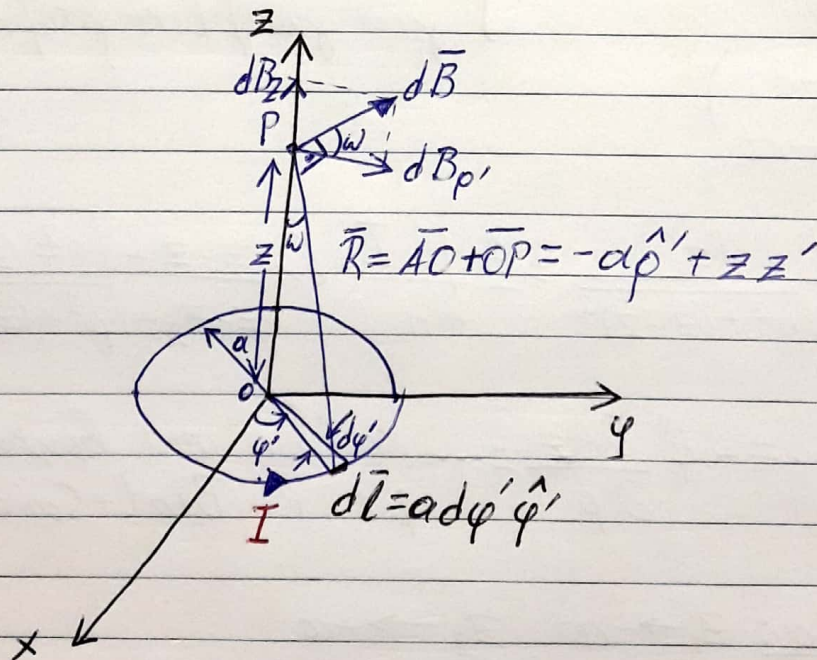 z
dB_z
dB̄
P
ω
dB_ρ'
ω
z
R̄ = A̅O̅ + O̅P̅ = -aρ̂' + z z'
a
O
φ'
dφ'
y
I
dl̄ = adφ'φ̂'
x